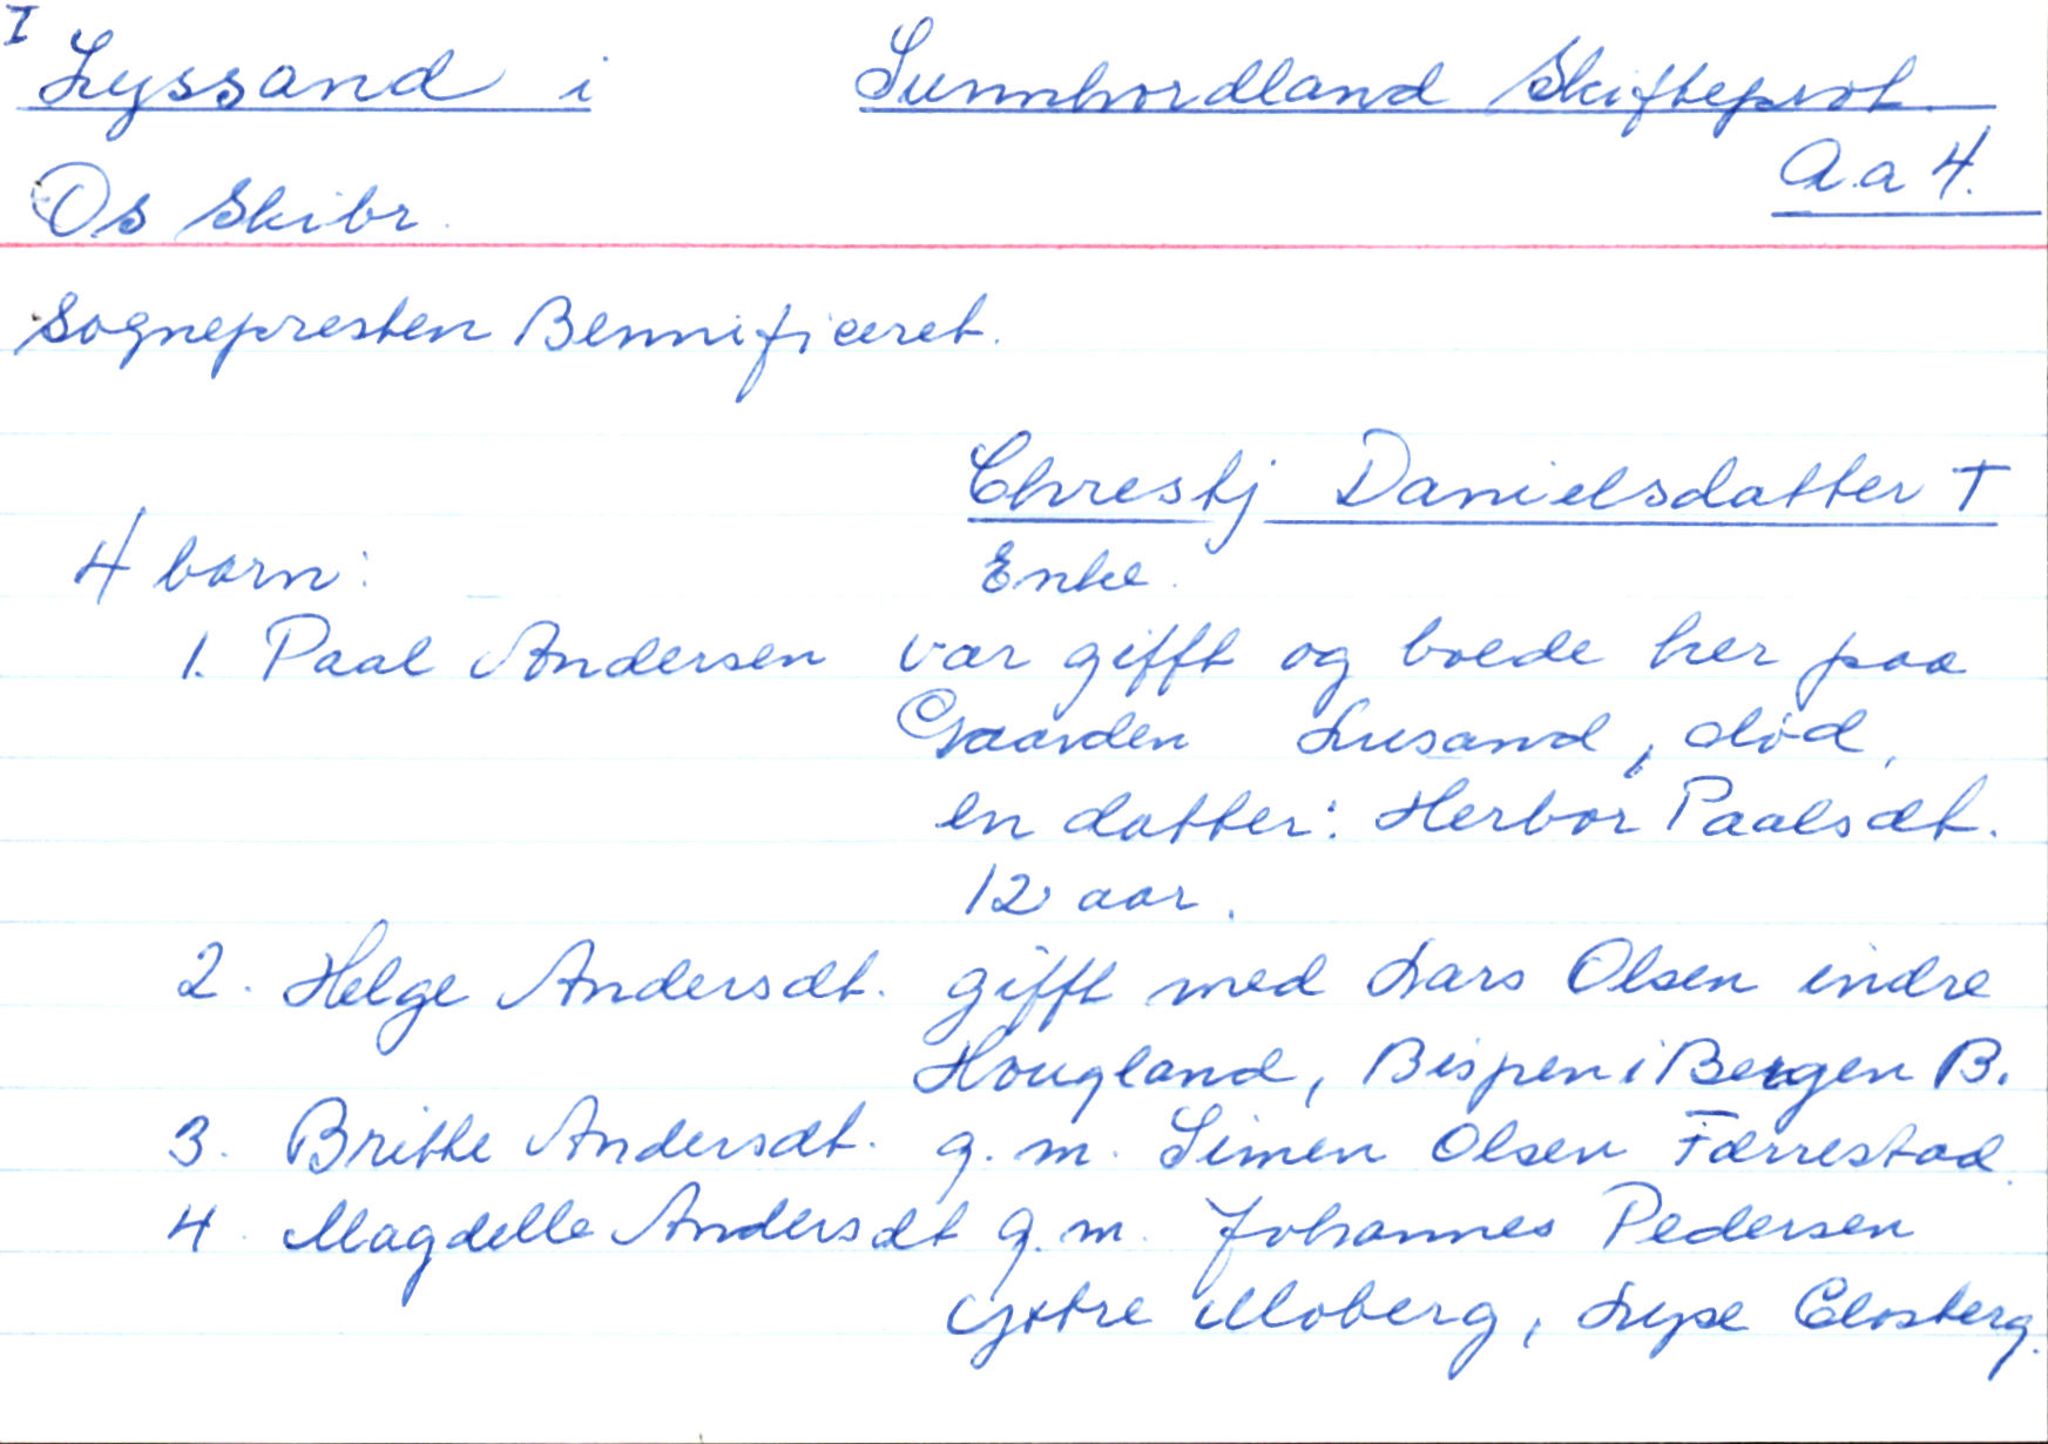 I
Lyssand i Sunnhordland Skifteprot.
A.a 4.
Os Skibr.
Sognepresten Bennificeret.
Chrestj Danielsdatter †
4 born: Enke.
1. Paal Andersen var gifft og boede her paa
Gaarden Lusand, død,
en datter: Herbor Paalsdt.
12 aar.
2. Helge Andersdt. gifft med Lars Olsen indre
Hougland, Bispen i Bergen B.
3. Britke Andersdt. g. m. Simen Olsen Færrestad.
4. Magdelle Andersdt g. m. Johannes Pedersen
Ystre Moberg, Lyse Closterg.